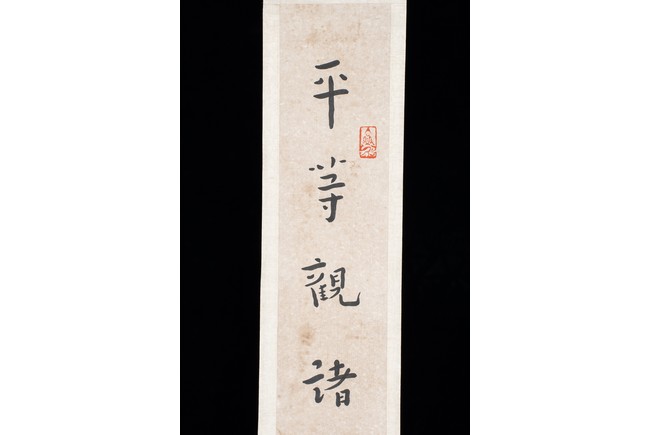 平等觀諸